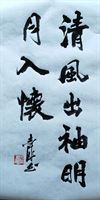 清風出袖明
月入懷